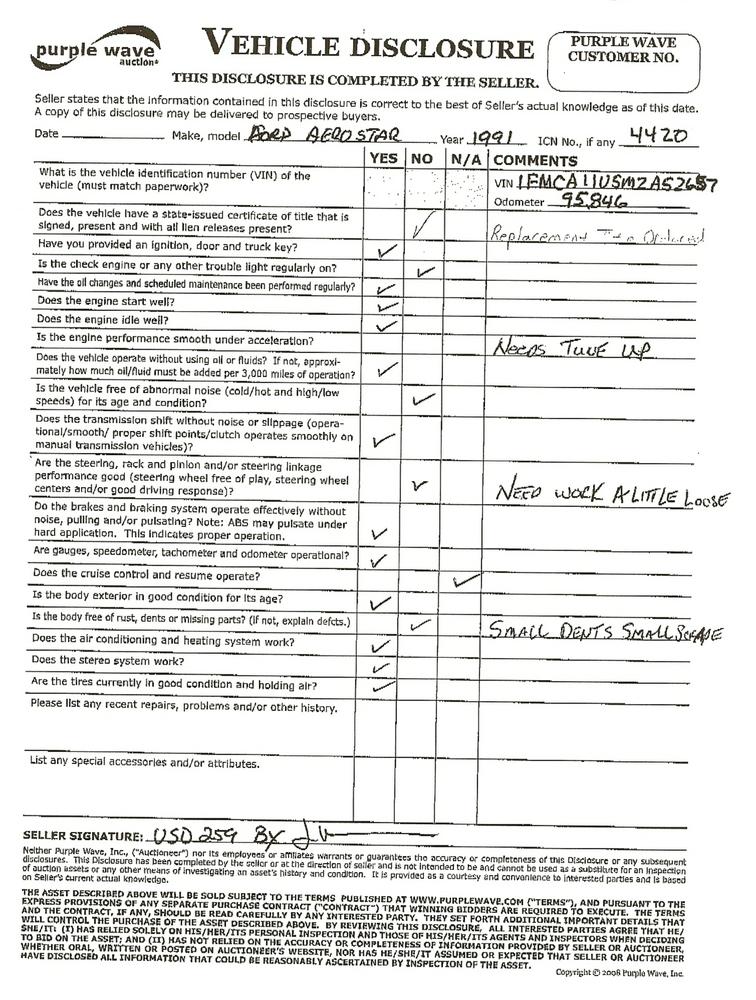 purple wave
auction®
VEHICLE DISCLOSURE
PURPLE WAVE
CUSTOMER NO.
THIS DISCLOSURE IS COMPLETED BY THE SELLER.
Seller states that the information contained in this disclosure is correct to the best of Seller's actual knowledge as of this date.
A copy of this disclosure may be delivered to prospective buyers.
Date Make, model FORD AEROSTAR Year 1991 ICN No., if any 4420
YES NO N/A COMMENTS
What is the vehicle identification number (VIN) of the
vehicle (must match paperwork)?
VIN 1FMCA11U5MZA52657
Odometer 95,846
Does the vehicle have a state-issued certificate of title that is
signed, present and with all lien releases present? ✓
Replacement Ordered
Have you provided an ignition, door and truck key? ✓
Is the check engine or any other trouble light regularly on? ✓
Have the oil changes and scheduled maintenance been performed regularly? ✓
Does the engine start well? ✓
Does the engine idle well? ✓
Is the engine performance smooth under acceleration? NEEDS TUNE UP
Does the vehicle operate without using oil or fluids? If not, approxi-
mately how much oil/fluid must be added per 3,000 miles of operation? ✓
Is the vehicle free of abnormal noise (cold/hot and high/low
speeds) for its age and condition? ✓
Does the transmission shift without noise or slippage (opera-
tional/smooth/ proper shift points/clutch operates smoothly on
manual transmission vehicles)? ✓
Are the steering, rack and pinion and/or steering linkage
performance good (steering wheel free of play, steering wheel
centers and/or good driving response)? ✓ NEED WORK A LITTLE LOOSE
Do the brakes and braking system operate effectively without
noise, pulling and/or pulsating? Note: ABS may pulsate under
hard application. This indicates proper operation. ✓
Are gauges, speedometer, tachometer and odometer operational? ✓
Does the cruise control and resume operate? ✓
Is the body exterior in good condition for its age? ✓
Is the body free of rust, dents or missing parts? (if not, explain defcts.) ✓ SMALL DENTS SMALL SCRAPE
Does the air conditioning and heating system work? ✓
Does the stereo system work? ✓
Are the tires currently in good condition and holding air? ✓
Please list any recent repairs, problems and/or other history.
List any special accessories and/or attributes.
SELLER SIGNATURE: USD 259 By
Neither Purple Wave, Inc., ("Auctioneer") nor its employees or affiliates warrants or guarantees the accuracy or completeness of this Disclosure or any subsequent
disclosures. This Disclosure has been completed by the seller or at the direction of seller and is not intended to be and cannot be used as a substitute for an inspection
of auction assets or any other means of investigating an asset's history and condition. It is provided as a courtesy and convenience to interested parties and is based
on Seller's current actual knowledge.
THE ASSET DESCRIBED ABOVE WILL BE SOLD SUBJECT TO THE TERMS PUBLISHED AT WWW.PURPLEWAVE.COM ("TERMS"), AND PURSUANT TO THE
EXPRESS PROVISIONS OF ANY SEPARATE PURCHASE CONTRACT ("CONTRACT") THAT WINNING BIDDERS ARE REQUIRED TO EXECUTE. THE TERMS
AND THE CONTRACT, IF ANY, SHOULD BE READ CAREFULLY BY ANY INTERESTED PARTY. THEY SET FORTH ADDITIONAL IMPORTANT DETAILS THAT
WILL CONTROL THE PURCHASE OF THE ASSET DESCRIBED ABOVE. BY REVIEWING THIS DISCLOSURE, ALL INTERESTED PARTIES AGREE THAT HE/
SHE/IT: (I) HAS RELIED SOLELY ON HIS/HER/ITS PERSONAL INSPECTION AND THOSE OF HIS/HER/ITS AGENTS AND INSPECTORS WHEN DECIDING
TO BID ON THE ASSET; AND (II) HAS NOT RELIED ON THE ACCURACY OR COMPLETENESS OF INFORMATION PROVIDED BY SELLER OR AUCTIONEER
WHETHER ORAL, WRITTEN OR POSTED ON AUCTIONEER'S WEBSITE, NOR HAS HE/SHE/IT ASSUMED OR EXPECTED THAT SELLER OR AUCTIONEER
HAVE DISCLOSED ALL INFORMATION THAT COULD BE REASONABLY ASCERTAINED BY INSPECTION OF THE ASSET.
Copyright © 2008 Purple Wave, Inc.